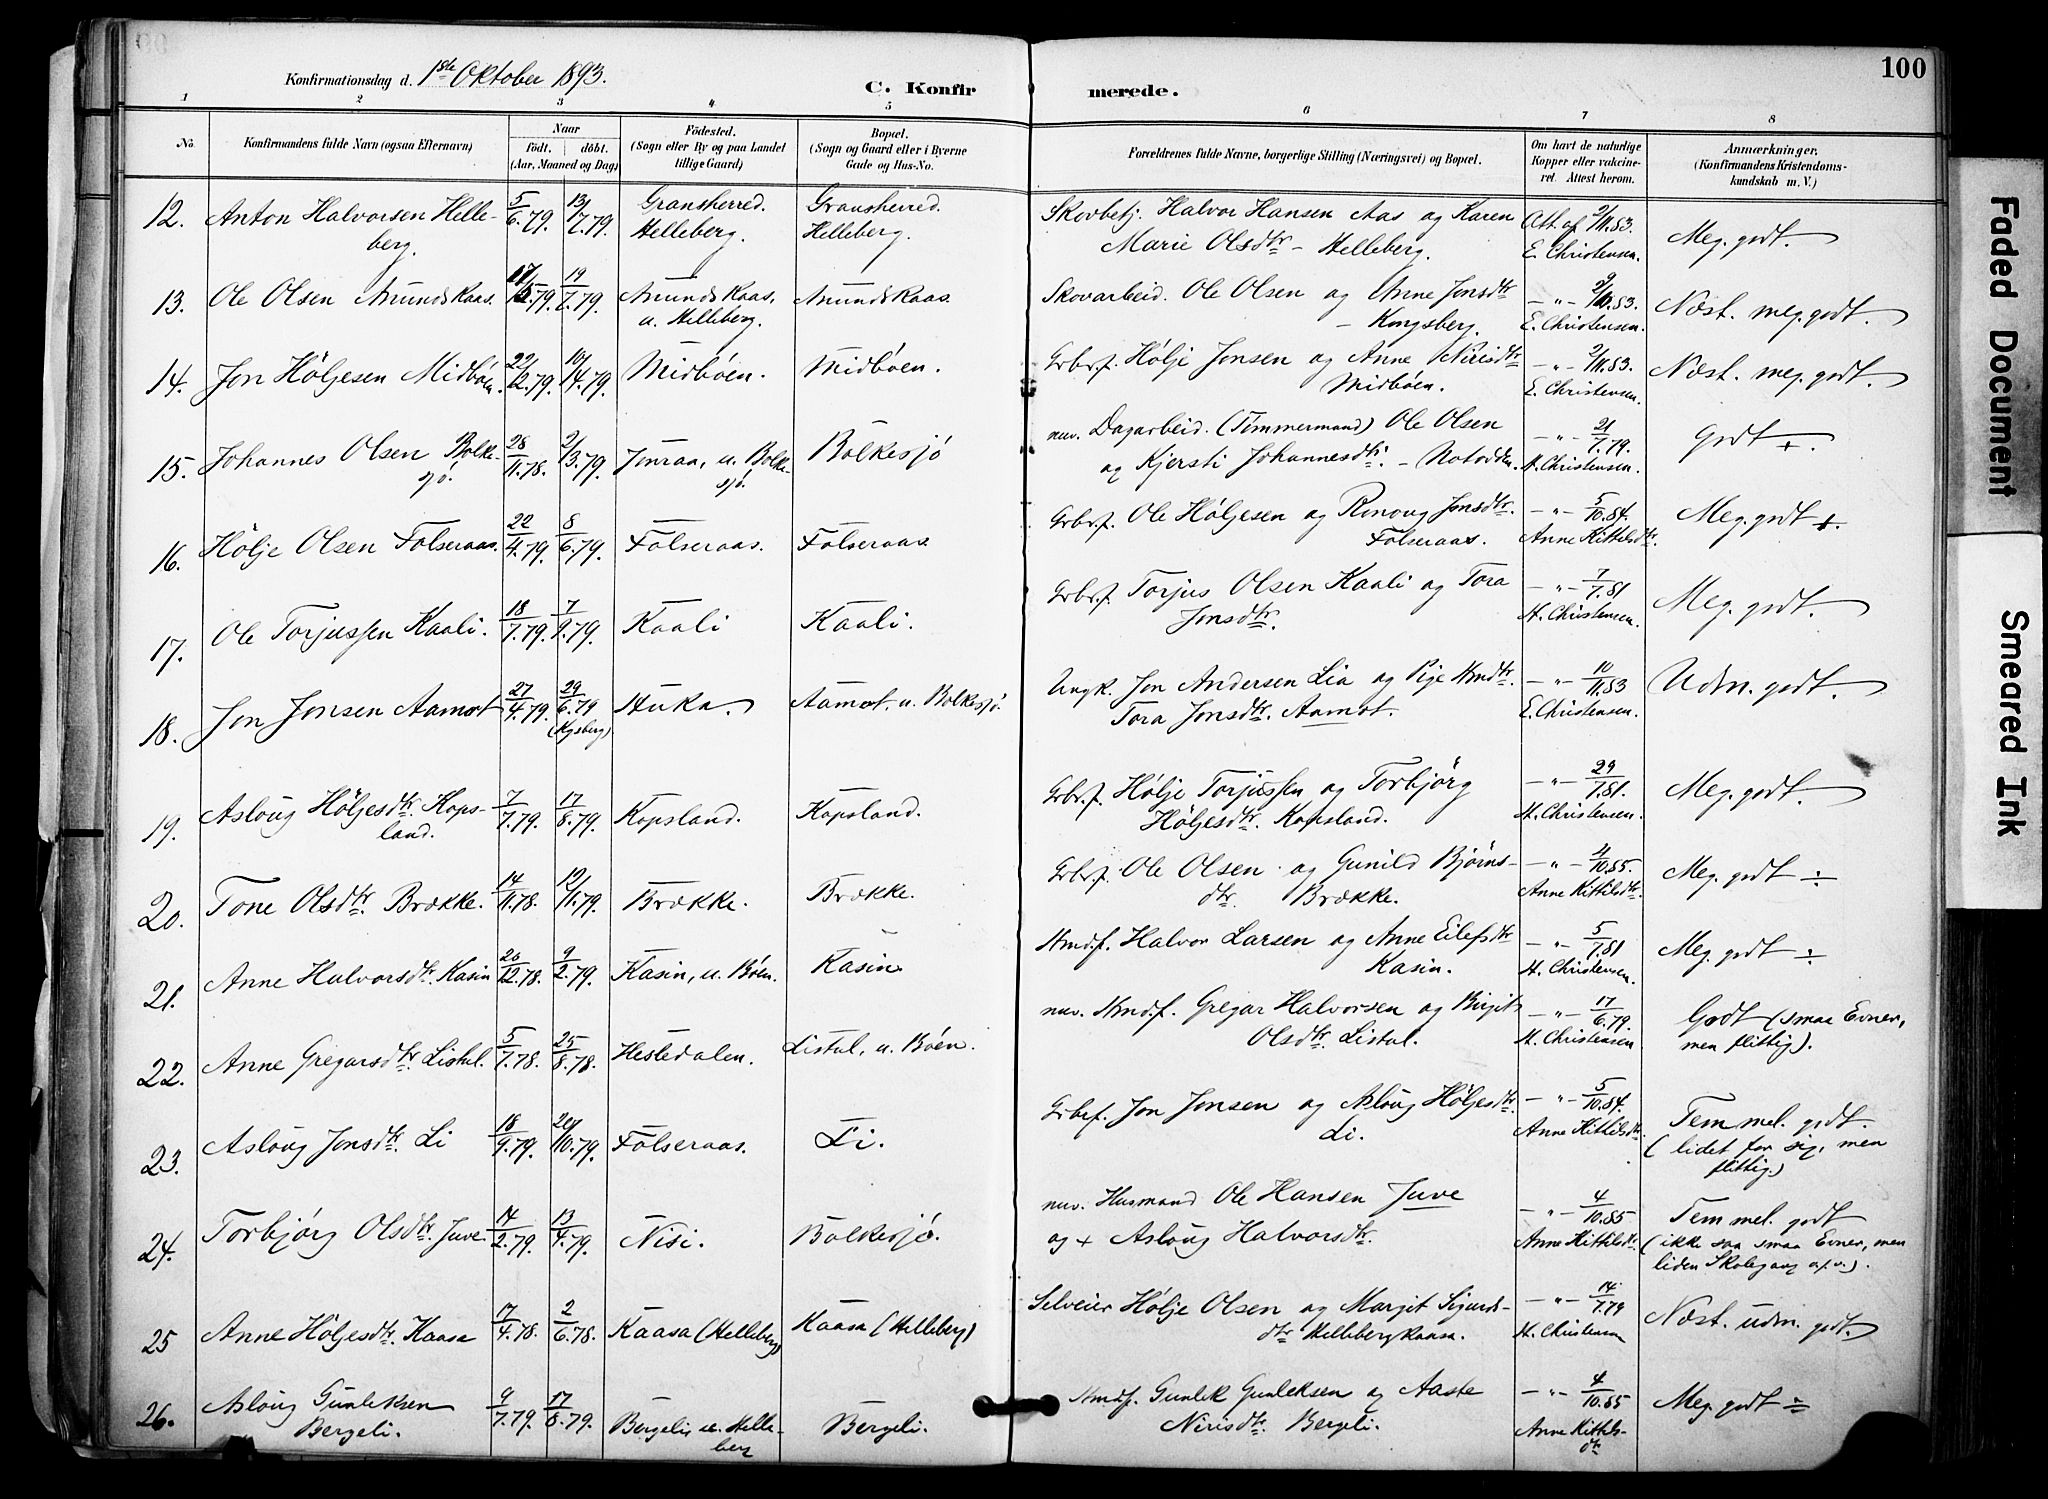 Konfirmationsdag d. 1ste Oktober 1893.
C. Konfirmerede.
100
1 2 3 4 5 6 7 8
No.
Konfirmandens fulde Navn (ogsaa Efternavn)
Naar
født. døbt.
(Aar, Maaned og Dag)
Fødested.
(Sogn eller By og paa Landet
tillige Gaard)
Bopæl.
(Sogn og Gaard eller i Byerne
Gade og Hus-No.
Forældrenes fulde Navne, borgerlige Stilling (Næringsvei) og Bopæl.
Om havt de naturlige
Kopper eller vakcine-
ret. Attest herom.
Anmærkninger.
(Konfirmandens Kristendoms-
kundskab m. V.)
12. Anton Halvorsen Helle- 5/6.79. 13/7.79. Gransherred. Gransherred. Skovbetj. Halvor Hansen Aas og Karen Att. af 2/11.83. Meg. godt.
berg. Helleberg. Helleberg. Marie Olsdtr – Helleberg. E. Christensen.
13. Ole Olsen Amundskaas. 17/5.79. 19/7.79. Amundskaas, Amundskaas. Skovarbeid. Ole Olsen og Anne Jonsdtr – " – 83. Næst. meg. godt.
u. Helleberg. – Kongsberg. E. Christensen.
14. Jon Höljesen Midbøen. 22/12.79. 10/14.79. Midbøen. Midbøen. Grbr.f. Hølje Jonsen og Anne Nirisdtr – " – 2/11.83. Næst. meg. godt.
Midbøen. E. Christensen.
15. Johannes Olsen Bolke- 28/11.78. 2/3.79. Jonraa, u. Bolke- Bolkesjø nuv. Dagarbeid. (Tømmermand) Ole Olsen – " – 21/7.79. Godt +.
sjø. sjø. og Kjersti Johannesdtr. – Notodden. H. Christensen.
16. Hølje Olsen Følseraas. 22/4.79. 8/6.79. Følseraas. Følseraas. Grbr.f. Ole Høljesen og Ronoug Jonsdtr. – " – 5/10.84. Meg. godt +.
Følseraas. Anne Kittilsdtr.
17. Ole Torjussen Kaali. 18/7.79. 7/9.79. Kaali Kaali. Grbr.f. Torjus Olsen Kaali og Tora – " – 7/7.81 Meg. godt.
Jonsdtr. H. Christensen.
18. Jon Jonsen Aamot 27/4.79. 29/6.79 Huka. Aamot. u. Bolkesjø. Ungk. Jon Andersen Lia og Pige Hmdtr. – " – 10/11.83 Udm. godt.
(Kgsberg) Tora Jonsdtr. Aamot. E. Christensen.
19. Asloug Höljesdtr. Kops- 7/7.79. 17/8.79. Kopsland. Kopsland. Grbr.f. Hølje Torjussen og Torbjörg – " – 29/7.81. Meg. godt.
land. Höljesdtr. Kopsland. H. Christensen.
20. Tone Olsdtr. Brække. 14/11.78. 12/1.79. Brække. Brække. Grbr.f. Ole Olsen og Gunild Bjørns- – " – 4/10.85. Meg. godt ÷
dtr. Brække. Anne Kittilsdtr.
21. Anne Halvorsdtr. Kasin 26/12.78. 9/2.79. Kasin, u. Bøen. Kasin. Hmd.f. Halvor Larsen og Anne Eilefsdtr – " – 5/7.81 Meg. godt ÷
Kasin. H. Christensen.
22. Anne Gregarsdtr. Listul. 5/7.78. 25/8.78. Hestedalen. Listul, u. Bøen. nuv. Hmd.f. Gregar Halvorsen og Birgit – " – 17/6.79. Godt (smaa Evner,
Olsdtr. Listul. H. Christensen men flittig).
23. Asloug Jonsdtr. Li 18/9.79. 20/10.79. Følseraas. Li. Grbr.f. Jon Jonsen og Asloug Höljesdtr. – " – 5/10.84. Temmel. godt.
Li. Anne Kittilsdtr. (lidet for sig, men
flittig.)
24. Torbjørg Olsdtr. Juve. 14/2.79. 13/4.79. Nisi. Bolkesjø. nuv. Husmand Ole Hansen Juve – " – 4/10.85 Temmel. godt
og + Asloug Halvorsdtr. Anne Kittilsdtr. (ikke saa smaa Evner, men
liden Skolegang o.s.v.).
25 Anne Höljesdtr. Kaasa 17/4.78. 2/6.78. Kaasa (Helleberg) Kaasa (Helleberg) Selveier Hølje Olsen og Margit Sigurds- – " – 14/7.79 Næst. udm. godt.
dtr Hellebergkaasa. H. Christensen
26. Asloug Gunleksen 9/7.79. 17/8.79. Bergeli u. Helle- Bergeli. Hmdf. Gunlek Gunleksen og Aaste – " – 4/10.85 Meg. godt ÷
Bergeli. berg Nirisdtr. Bergeli. Anne Kittils-
dtr
Faded Document
Smeared Ink